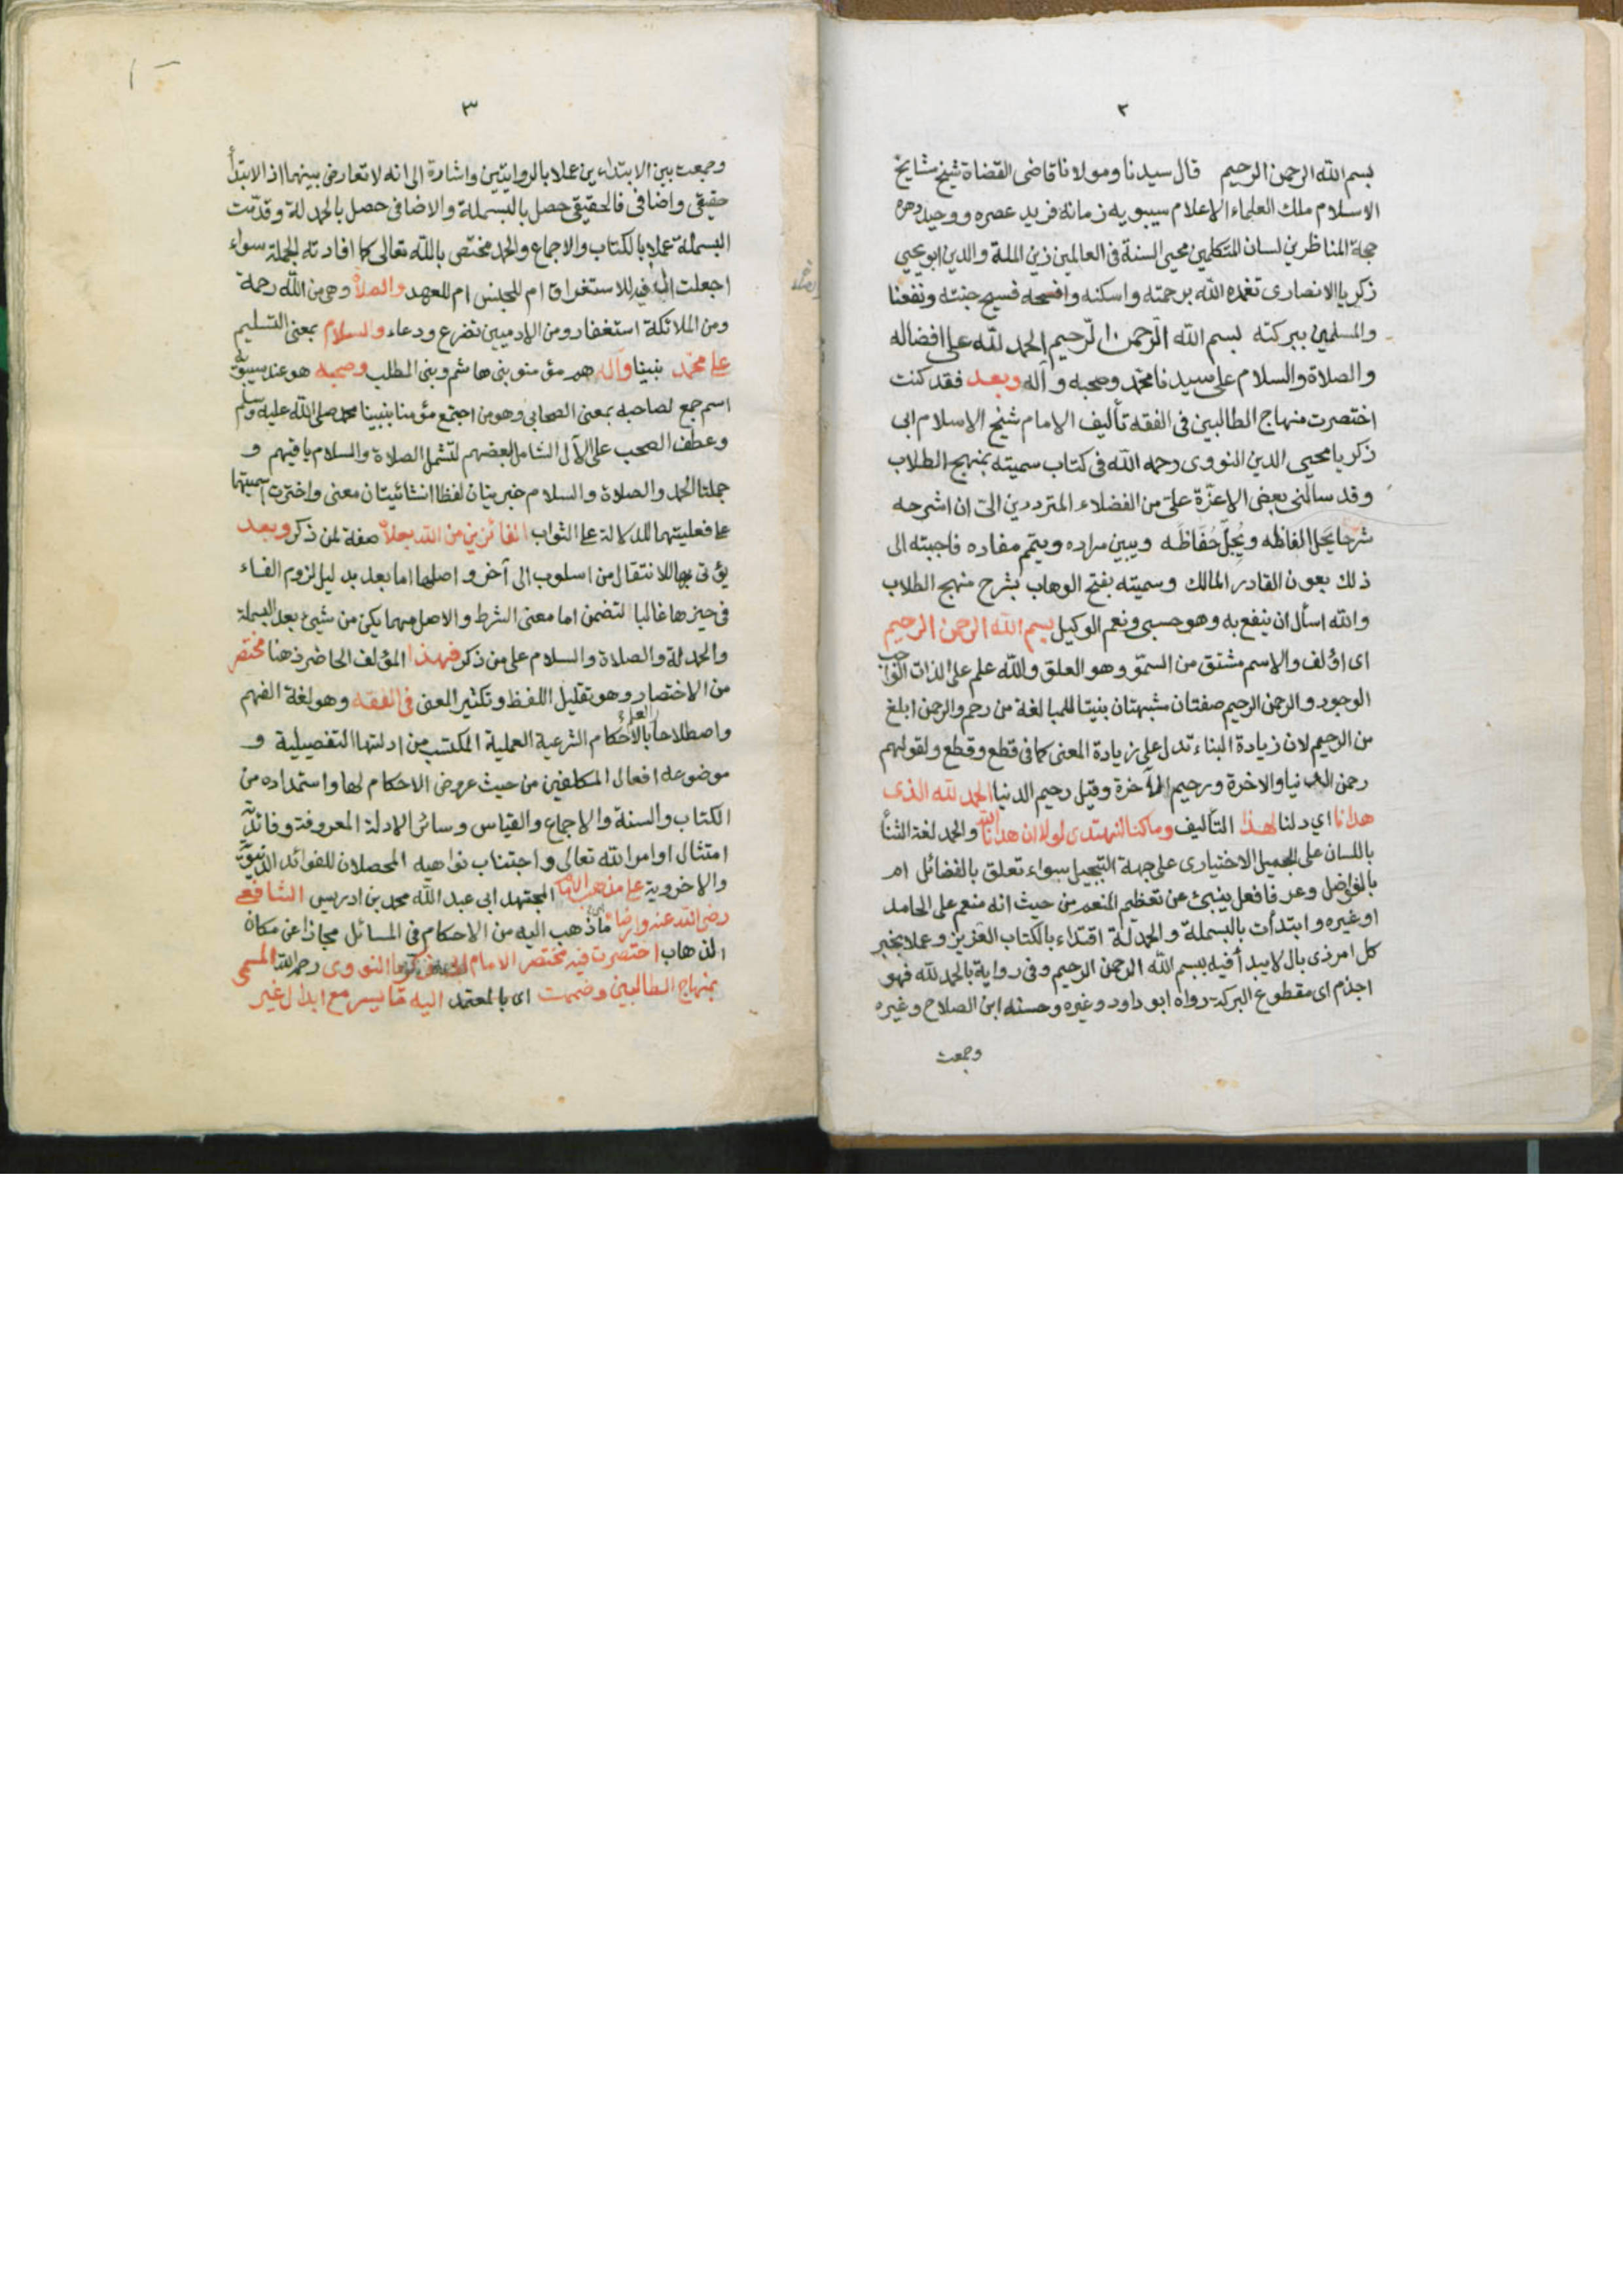 ٢
بسم الله الرحمن الرحيم قال سيدنا ومولانا قاضى القضاة شيخ مشايخ
الاسلام ملك العلماء الاعلام سيبويه زمانه فريد عصره ووحيد دهره
حجة المناظرين لسان المتكلمين محيى السنة فى العالمين زين الملة والدين ابو يحيي
زكريا الانصارى تغمده الله برحمته واسكنه وافسحه فسيح جنته ونفعنا
والمسلمين ببركته بسم الله الرّحمن الرّحيم الحمد لله على افضاله
والصلاة والسلام على سيدنا محمّد وصحبه وآله وبعد فقد كنت
اختصرت منهاج الطالبين فى الفقه تأليف الامام شيخ الاسلام ابى
زكريا محيي الدين النووى رحمه الله فى كتاب سميته بمنهج الطلاب
وقد سالنى بعض الاعزّة علىّ من الفضلاء المترددين الىّ ان اشرحه
شرحا يَحل الفاظه ويُجِلّ حُفّاظَه ويبين مراده ويتمم مفاده فاجبته الى
ذلك بعون القادر المالك وسميته بفتح الوهاب بشرح منهج الطلاب
والله اسأل ان ينفع به وهو حسبى ونعم الوكيل بسم الله الرحمن الرحيم
اى اؤلف والاسم مشتق من السمّو وهو العلو والله علم على الذات الواجب
الوجود والرحمن الرحيم صفتان مشبهتان بنيتا للمبالغة من رحم والرحمن ابلغ
من الرحيم لان زيادة البناء تدل على زيادة المعنى كما فى قطع وقطع ولقولهم
رحمن الدنيا والاخرة ورحيم الآخرة وقيل رحيم الدنيا الحمد لله الذى
هدانا اي دلنا لهذا التأليف وما كنا لنهتدى لولا ان هدانا الله والحمد لغة الثنأ
باللسان على الجميل الاختيارى على جهة التبجيل سواء تعلق بالفضائل ام
بالفواضل وعرفا فعل ينبئ عن تعظيم المنعم من حيث انه منعم على الحامد
او غيره وابتدأت بالبسملة والحمدلة اقتداء بالكتاب العزيز وعملا بخبر
كل امر ذى بال لا يبدأ فيه ببسم الله الرحمن الرحيم وفى رواية بالحمد لله فهو
اجذم اى مقطوع البركة رواه ابو داود وغيره وحسنه ابن الصلاح وغيره
وجمعت
٣
وجمعت بين الابتداءين عملا بالروايتين واشارة الى انه لا تعارض بينهما اذ الابتدأ
حقيقى واضافى فالحقيقى حصل بالبسملة والاضافى حصل بالحمدلة وقدّمت
البسملة عملا بالكتاب والاجماع والحمد مختص بالله تعالى كما افادته الجملة سواء
اجعلت ال فيه للاستغراق ام للجنس ام للعهد والصلاة وهى من الله رحمة
ومن الملائكة استغفار ومن الادميين تضرع ودعاء والسلام بمعنى التسليم
على محمّد نبينا وآله هم مؤمنو بنى هاشم وبنى المطلب وصحبه هو عند سيبويه
اسم جمع لصاحبه بمعنى الصحابى وهو من اجتمع مؤمنا بنبينا محمد صلى الله عليه وسلم
وعطف الصحب على الآل الشامل لبعضهم لتشمل الصلاة والسلام باقيهم و
جملتا الحمد والصلاة والسلام خبريتان لفظا انشائيتان معنى واخترت اسميتها
على فعليتهما للدلالة على الثواب الفائزين من الله بعلاه صفة لمن ذكر وبعد
يؤتى بها للانتقال من اسلوب الى آخر واصلها اما بعد بدليل لزوم الفاء
فى حيزها غالبا لتضمن اما معنى الشرط والاصل مهما يكن من شيئ بعد البسملة
والحمدلة والصلاة والسلام على من ذكر فهذا المؤلف الحاضر ذهنا مختصر
من الاختصار وهو تقليل اللفظ وتكثير المعنى فى الفقه وهو لغة الفهم
واصطلاحا العلم بالاحكام الشرعية العملية المكتسب من ادلتها التفصيلية و
موضوعه افعال المكلفين من حيث عروض الاحكام لها واستمداده من
الكتاب والسنة والاجماع والقياس وسائر الادلة المعروفة وفائدته
امتثال اوامر الله تعالى واجتناب نواهيه المحصلان للفوائد الدنيوية
والاخروية على مذهب الامام المجتهد ابى عبد الله محمد بن ادريس الشافعى
رضى الله عنه وارضاه ما ذهب اليه من الاحكام فى المسائل مجازا عن مكان
الذهاب اختصرت فيه مختصر الامام ابى زكريا النووى رحمه الله المسمى
بمنهاج الطالبين وضممت اى بالمعتمد اليه ما يسر مع ابدال غير